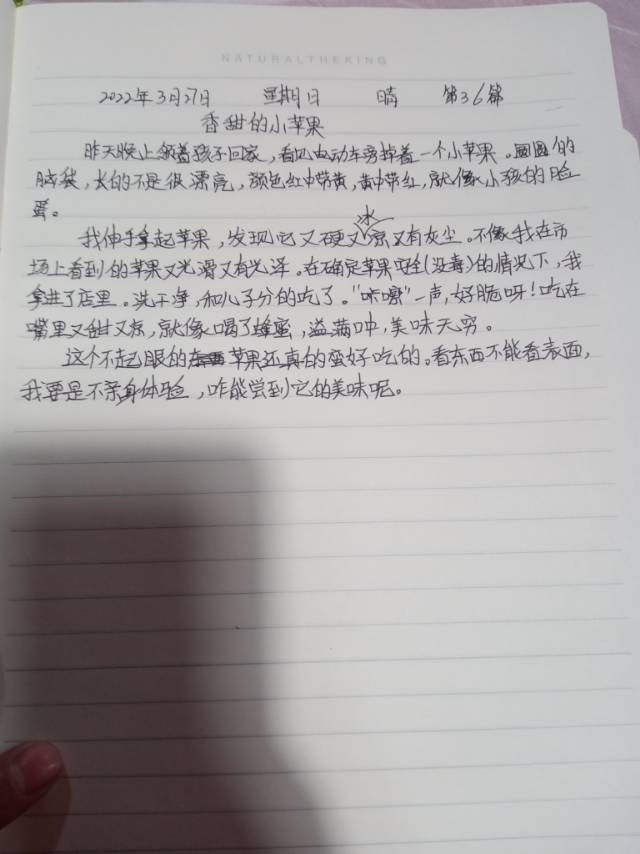 NATURALTHEKING
2022年3月27日 星期日 晴 第36篇
香甜的小苹果
昨天晚上领着孩子回家，看见电动车旁掉着一个小苹果。圆圆的
脑袋，长的不是很漂亮，颜色红中带黄，黄中带红，就像小孩的脸
蛋。
我伸手拿起苹果，发现它又硬又冰凉又有灰尘。不像我在市
场上看到的苹果又光滑又有光泽。在确定苹果安全(没毒)的情况下，我
拿进了店里。洗干净，和儿子分的吃了。"咔嚓"一声，好脆呀！吃在
嘴里又甜又凉，就像喝了蜂蜜，溢满口中，美味无穷。
这个不起眼的苹果还真的蛮好吃的。看东西不能看表面，
我要是不亲身体验，咋能尝到它的美味呢。